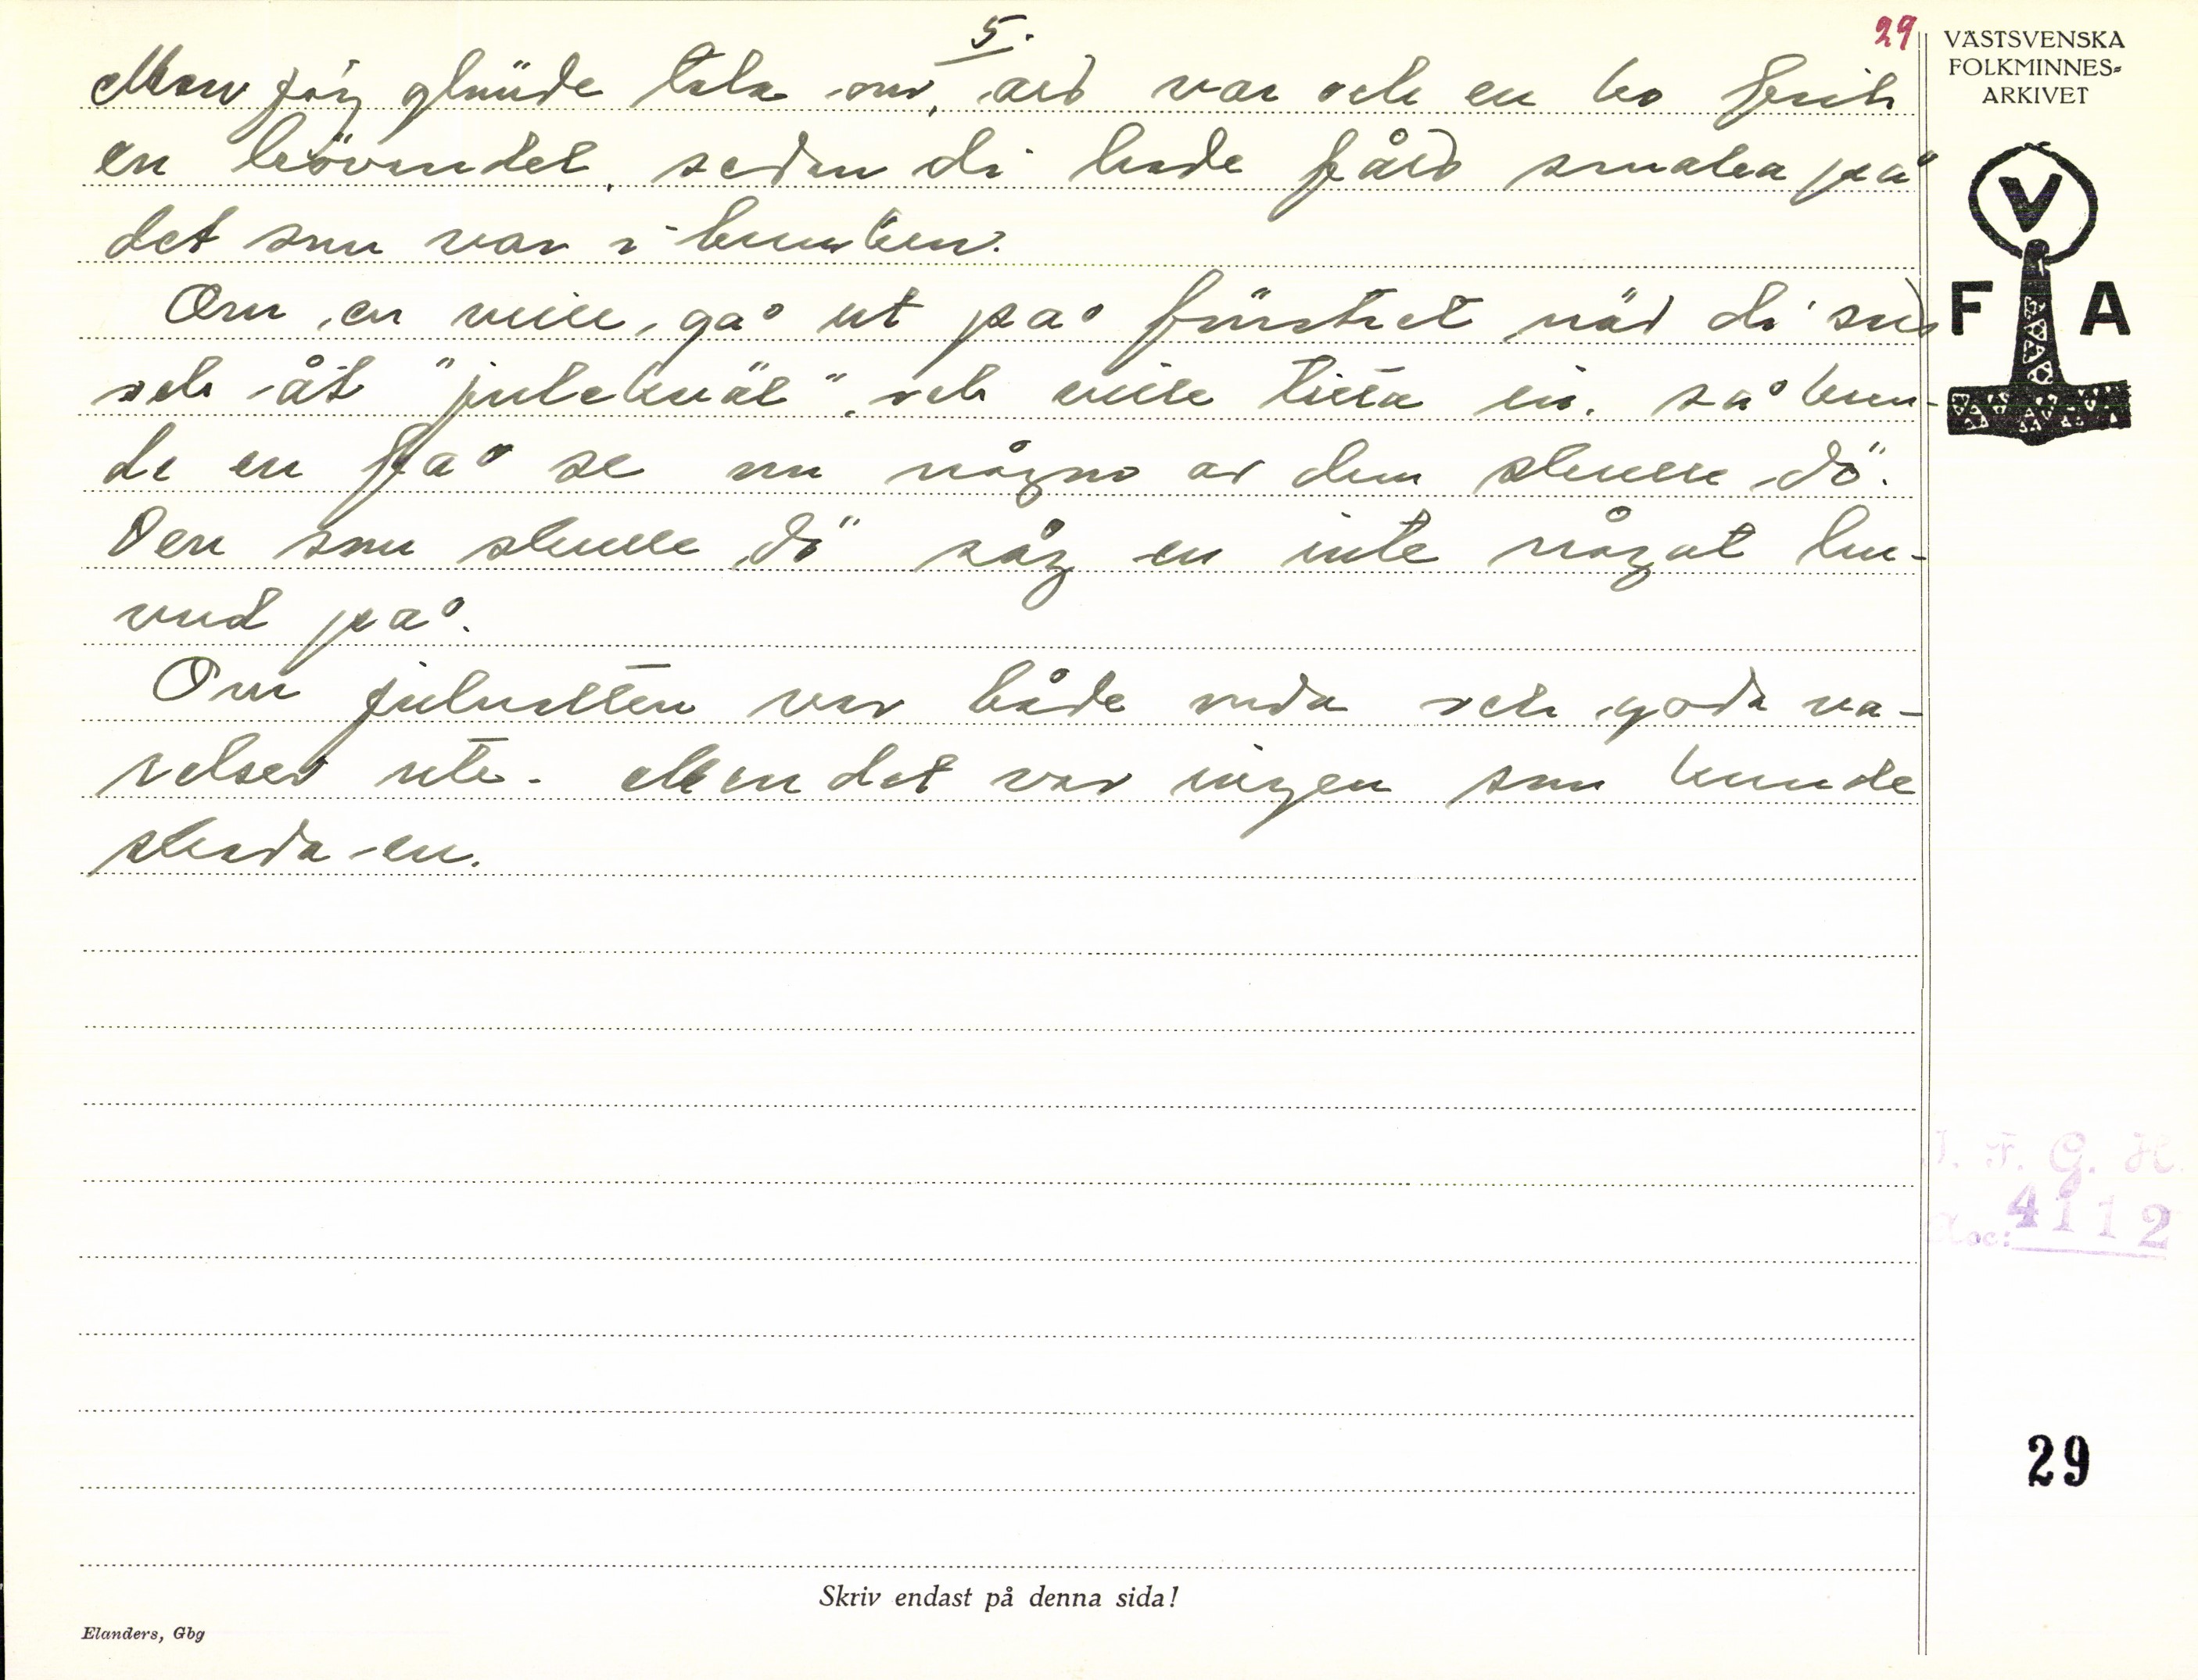 5.
29
Men jag glömde tala om, att var och en ko fick
en hövendel, sedan di hade fått smaka på
det som var i bunken.
Om en ville gå ut på fönstret när di satt
och åt "julekväl", och ville titta in, så kun-
de en få se om någon av dem skulle dö.
Den som skulle dö såg en inte något hu-
vud på.
Om julnatten var både onda och goda vä-
relser ute. Men det var ingen som kunde
skada en.
VÄSTSVENSKA
FOLKMINNES-
ARKIVET
V
F A
I. F. G. H.
Acc: 4112
29
Skriv endast på denna sida!
Elanders, Gbg